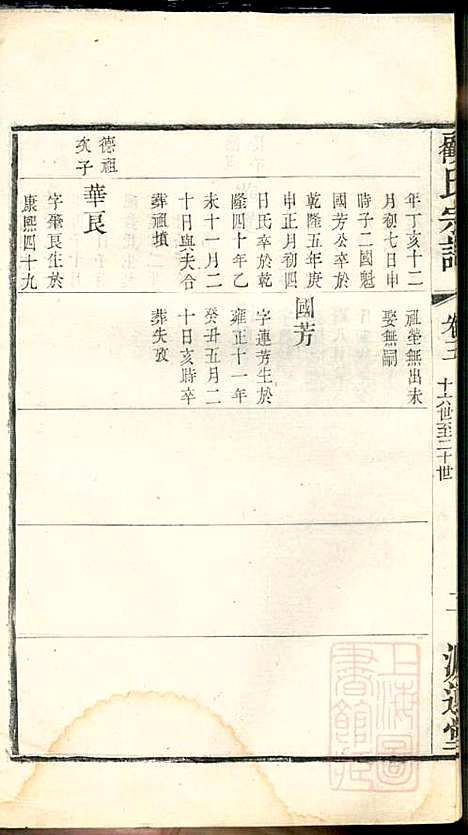 氏宗譜
卷三
十六世至二十世
年丁亥十二
月初七日申
時子二國魁
國芳公卒於
乾隆五年庚
申正月初四
日氏卒於乾
隆四十年乙
未十一月二
十日與夫合
葬祖墳
德祖
次子
華良
字肇良生於
康熙四十九
祖塋無出未
娶無嗣
國芳
字連芳生於
雍正十一年
癸丑五月二
十日亥時卒
葬失攷
上海圖
書館藏